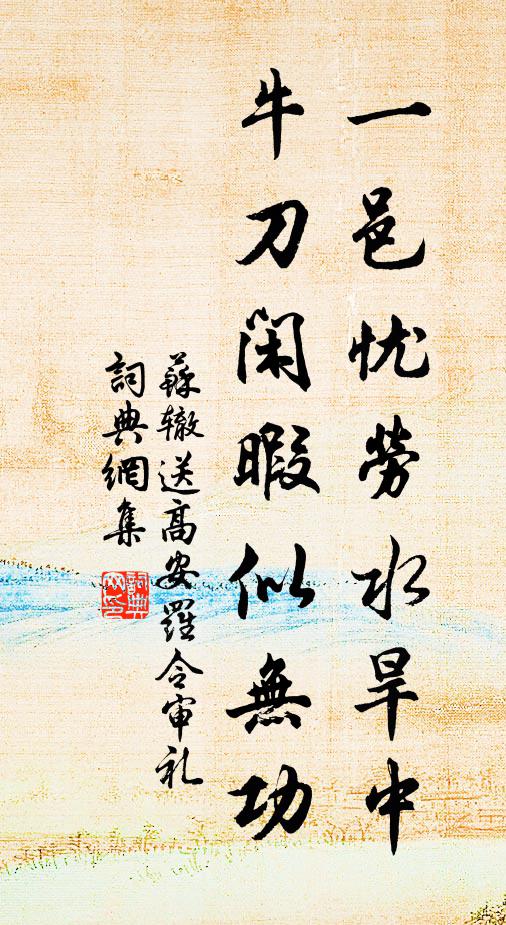 一邑忧勞水旱中
牛刀閑暇似無功
蘇辙送高安羅令审礼
詞典網集